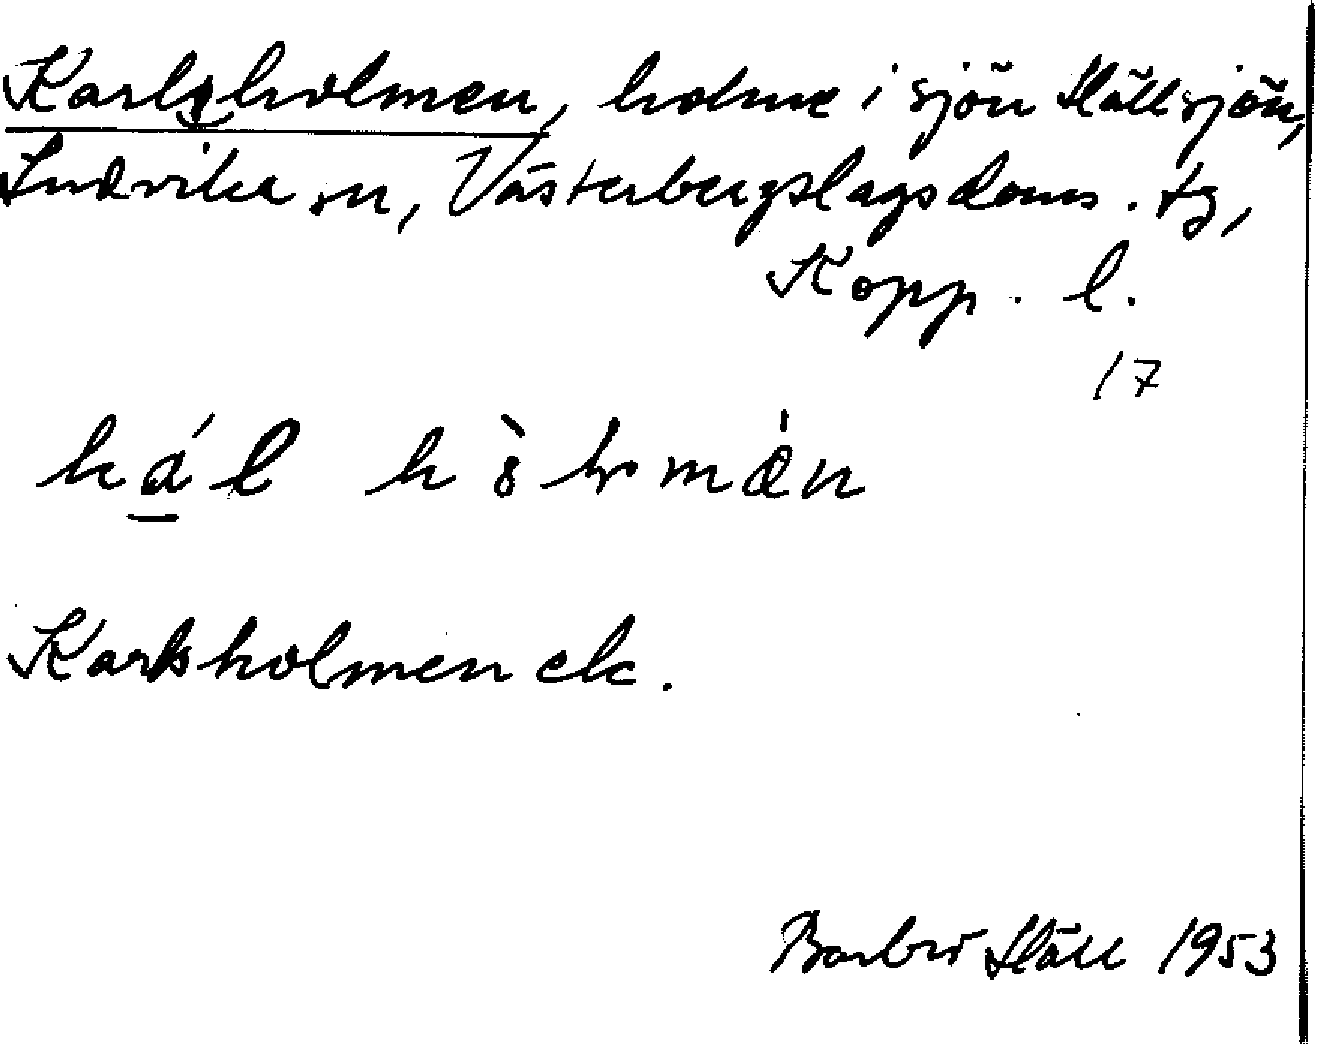 Karlsholmen, holme i sjön Hällsjön,
Ludvika sn, Västerbergslags doms. tg,
Kopp. l.
17
Karlsholmen ek.
Barbro Häll 1953